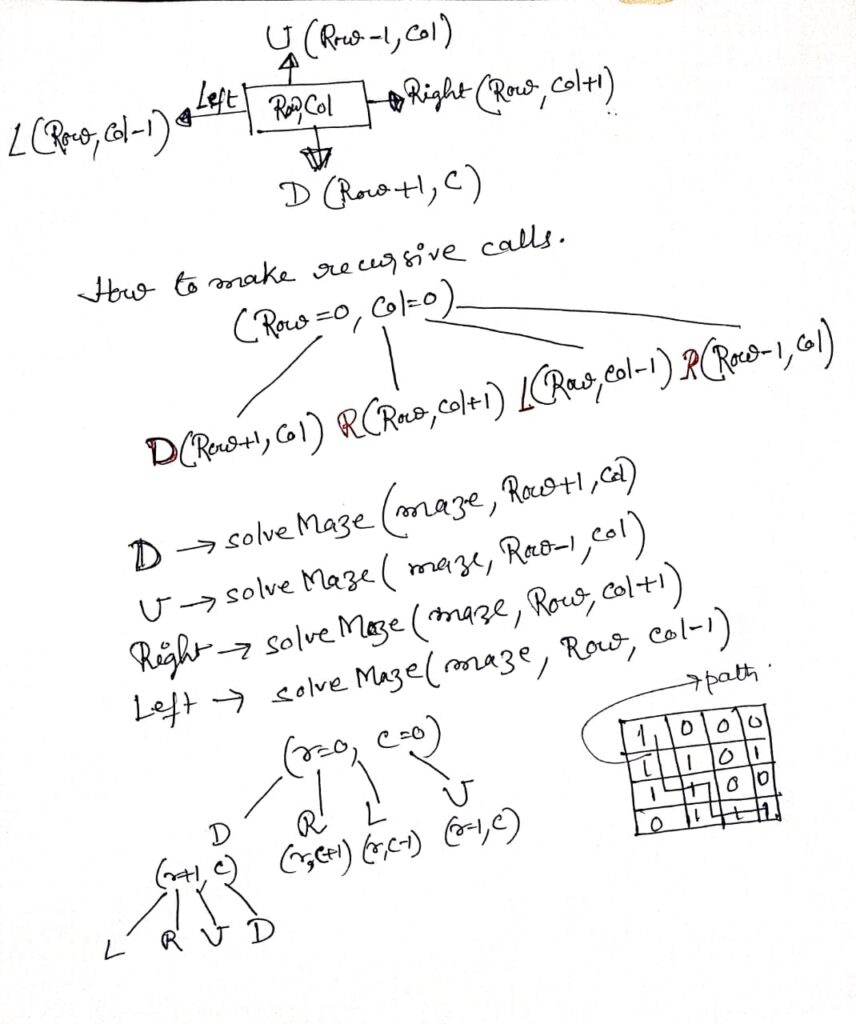 U (Row-1, Col)
Left
Row, Col
Right (Row, Col+1)
L (Row, Col-1)
D (Row+1, C)
How to make recursive calls.
(Row=0, Col=0)
D(Row+1, Col) R(Row, Col+1) L(Row, Col-1) R(Row-1, Col)
D → solveMaze (maze, Row+1, Col)
U → solve Maze( maze, Row-1, Col)
Right → solve Maze (maze, Row, Col+1)
Left → solve Maze( maze, Row, Col-1)
→ path.
(r=0, C=0)
D R L U
(r+1, C) (r,C+1) (r,C-1) (r-1, C)
L R U D
1 0 0 0
1 1 0 1
1 1 0 0
0 1 1 1